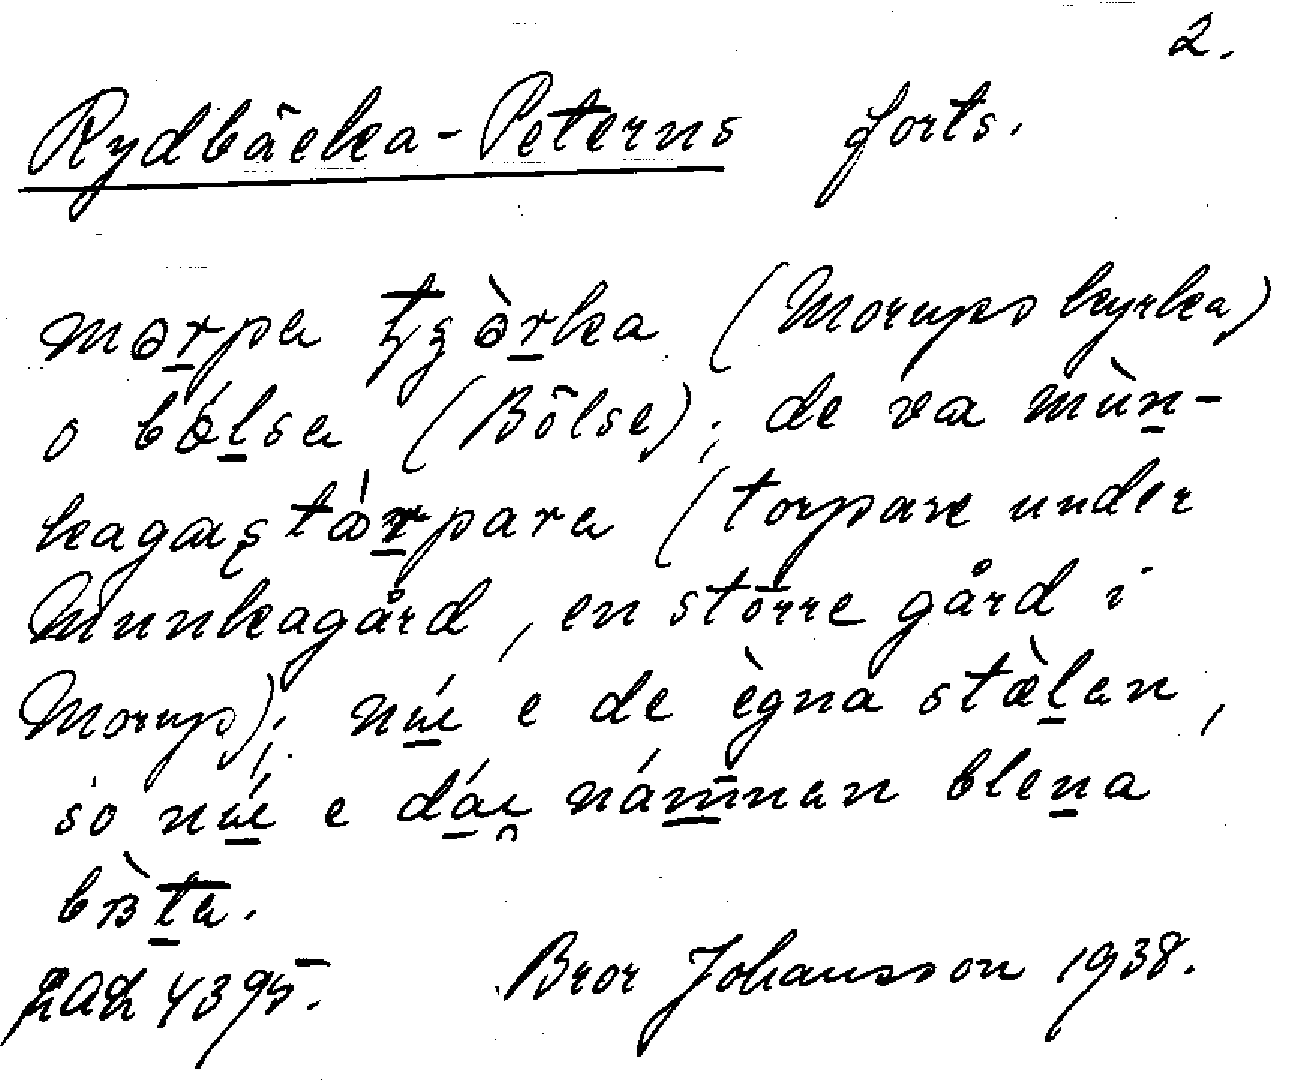 2.
Rydbäcka-Peterns forts.
mɵrpa tʒɵ̀rka (Morups kyrka)
o bǿlsa (Bölse); de va mùn-
kagaʂtɵ́rpara (torpare under
Munkagård, en större gård i
Morup); núɛ e de ègna stæ̀lən,
so núɛ e dáɛ námnən blena
bʙ̀ta.
4395. Bror Johansson 1938.